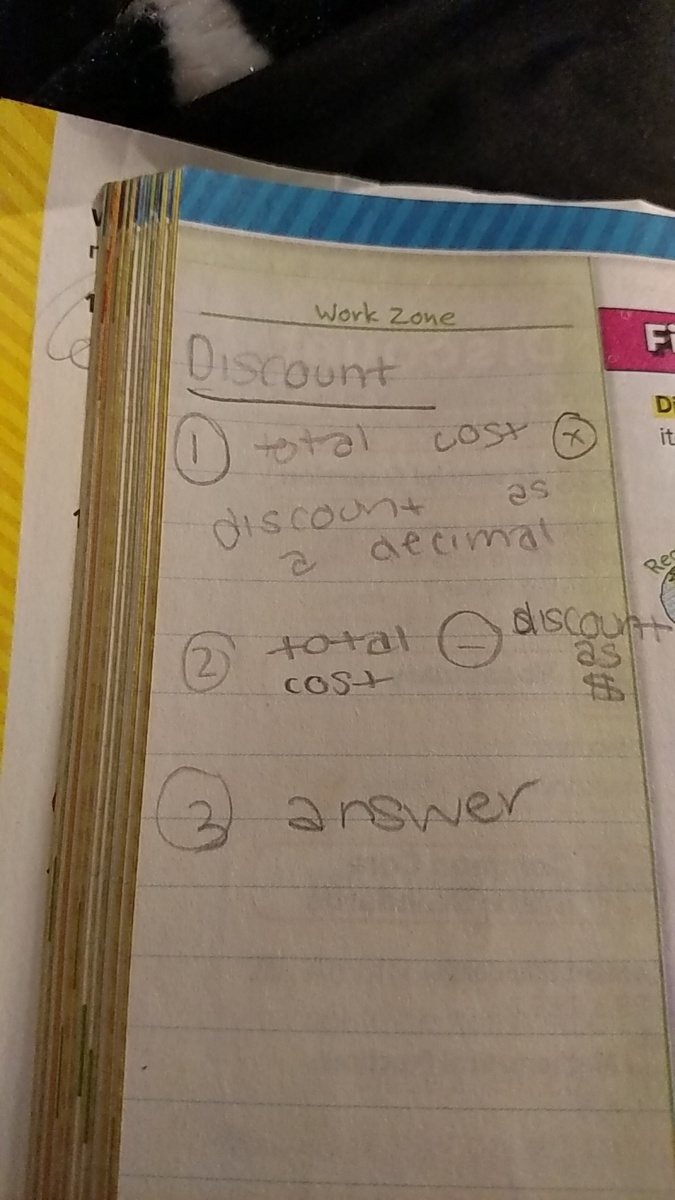 Work Zone
Discount
① total cost ⊗
discount as
a decimal
② total ⊖ discount
cost as
$
③ answer
Fi
Di
it
Rec